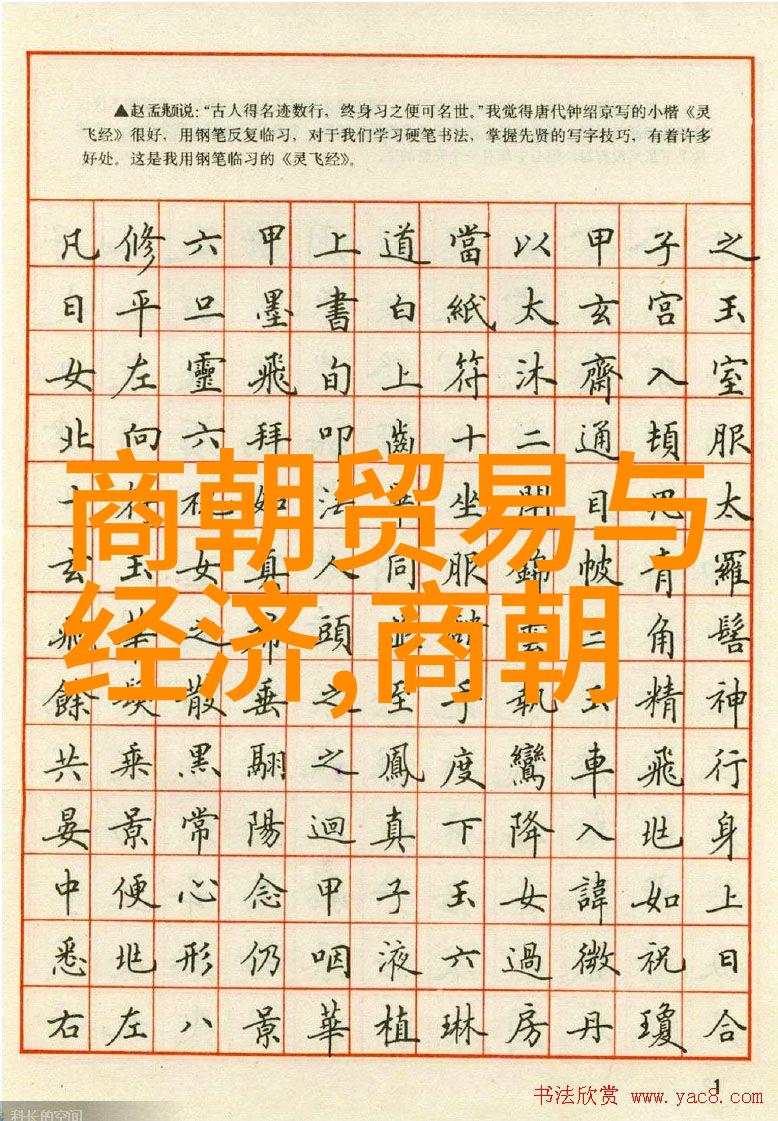 ▲赵孟頫说：“古人得名迹数行，终身习之便可名世。”我觉得唐代钟绍京写的小楷《灵
飞经》很好，用钢笔反复临习，对于我们学习硬笔书法，掌握先贤的写字技巧，有着许多
好处。这是我用钢笔临习的《灵飞经》。
凡修六甲上道當以甲子之
日平旦墨書白紙太玄宮玉
女左靈飛旬上符沐齋入室
北向六拜叩齒十二通頓服
十符祝如法畢坐目思太
玄玉女真人同服錦帔青羅
飛華之頭雲三角髻
餘髮散垂之至手執玉精神
共乘黑翮之鳳度鸞車飛行
晏景常陽迴真下降入北身
中便心念甲子玉女諱如上
悉北形仍咽液六過微祝日
右左八景華植琳房丹瓊合
商朝贸易与
经济,商朝
1
书法欣赏 www.yac8.com
科长的空间